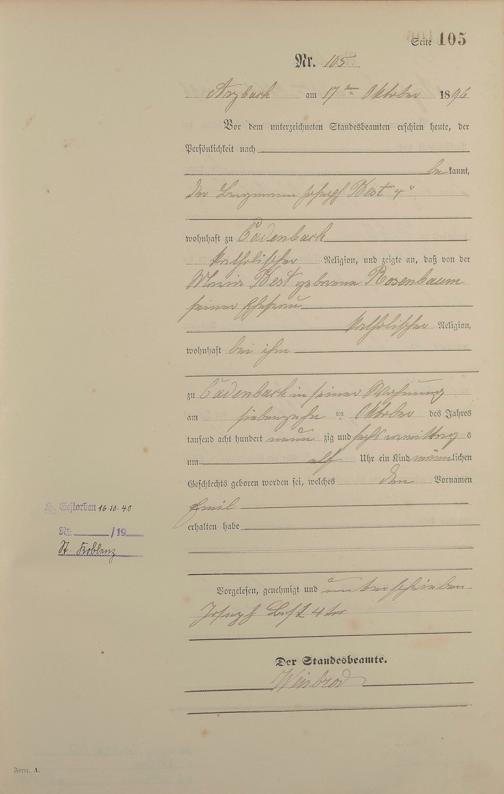 Seite 105
Nr. 105.
Arzbach am 17ten Oktober 1896
Vor dem unterzeichneten Standesbeamten erschien heute, der
Persönlichkeit nach
bekannt,
der Bergmann Joseph Best 4r
wohnhaft zu Cadenbach
katholischer Religion, und zeigte an, daß von der
Maria Best geborene Rosenbaum
seiner Ehefrau
katholischer Religion,
wohnhaft bei ihm
zu Cadenbach in seiner Wohnung
am siebenzehn ten Oktober des Jahres
tausend acht hundert neun zig und sechs vormittags
um elf Uhr ein Kind männlichen
Geschlechts geboren worden sei, welches den Vornamen
Emil
erhalten habe
Gestorben 16.10.40
Nr. /19
St. Koblenz
Vorgelesen, genehmigt und unterschrieben
Joseph Best 4ter
Der Standesbeamte.
Weisbrod
Form. A.